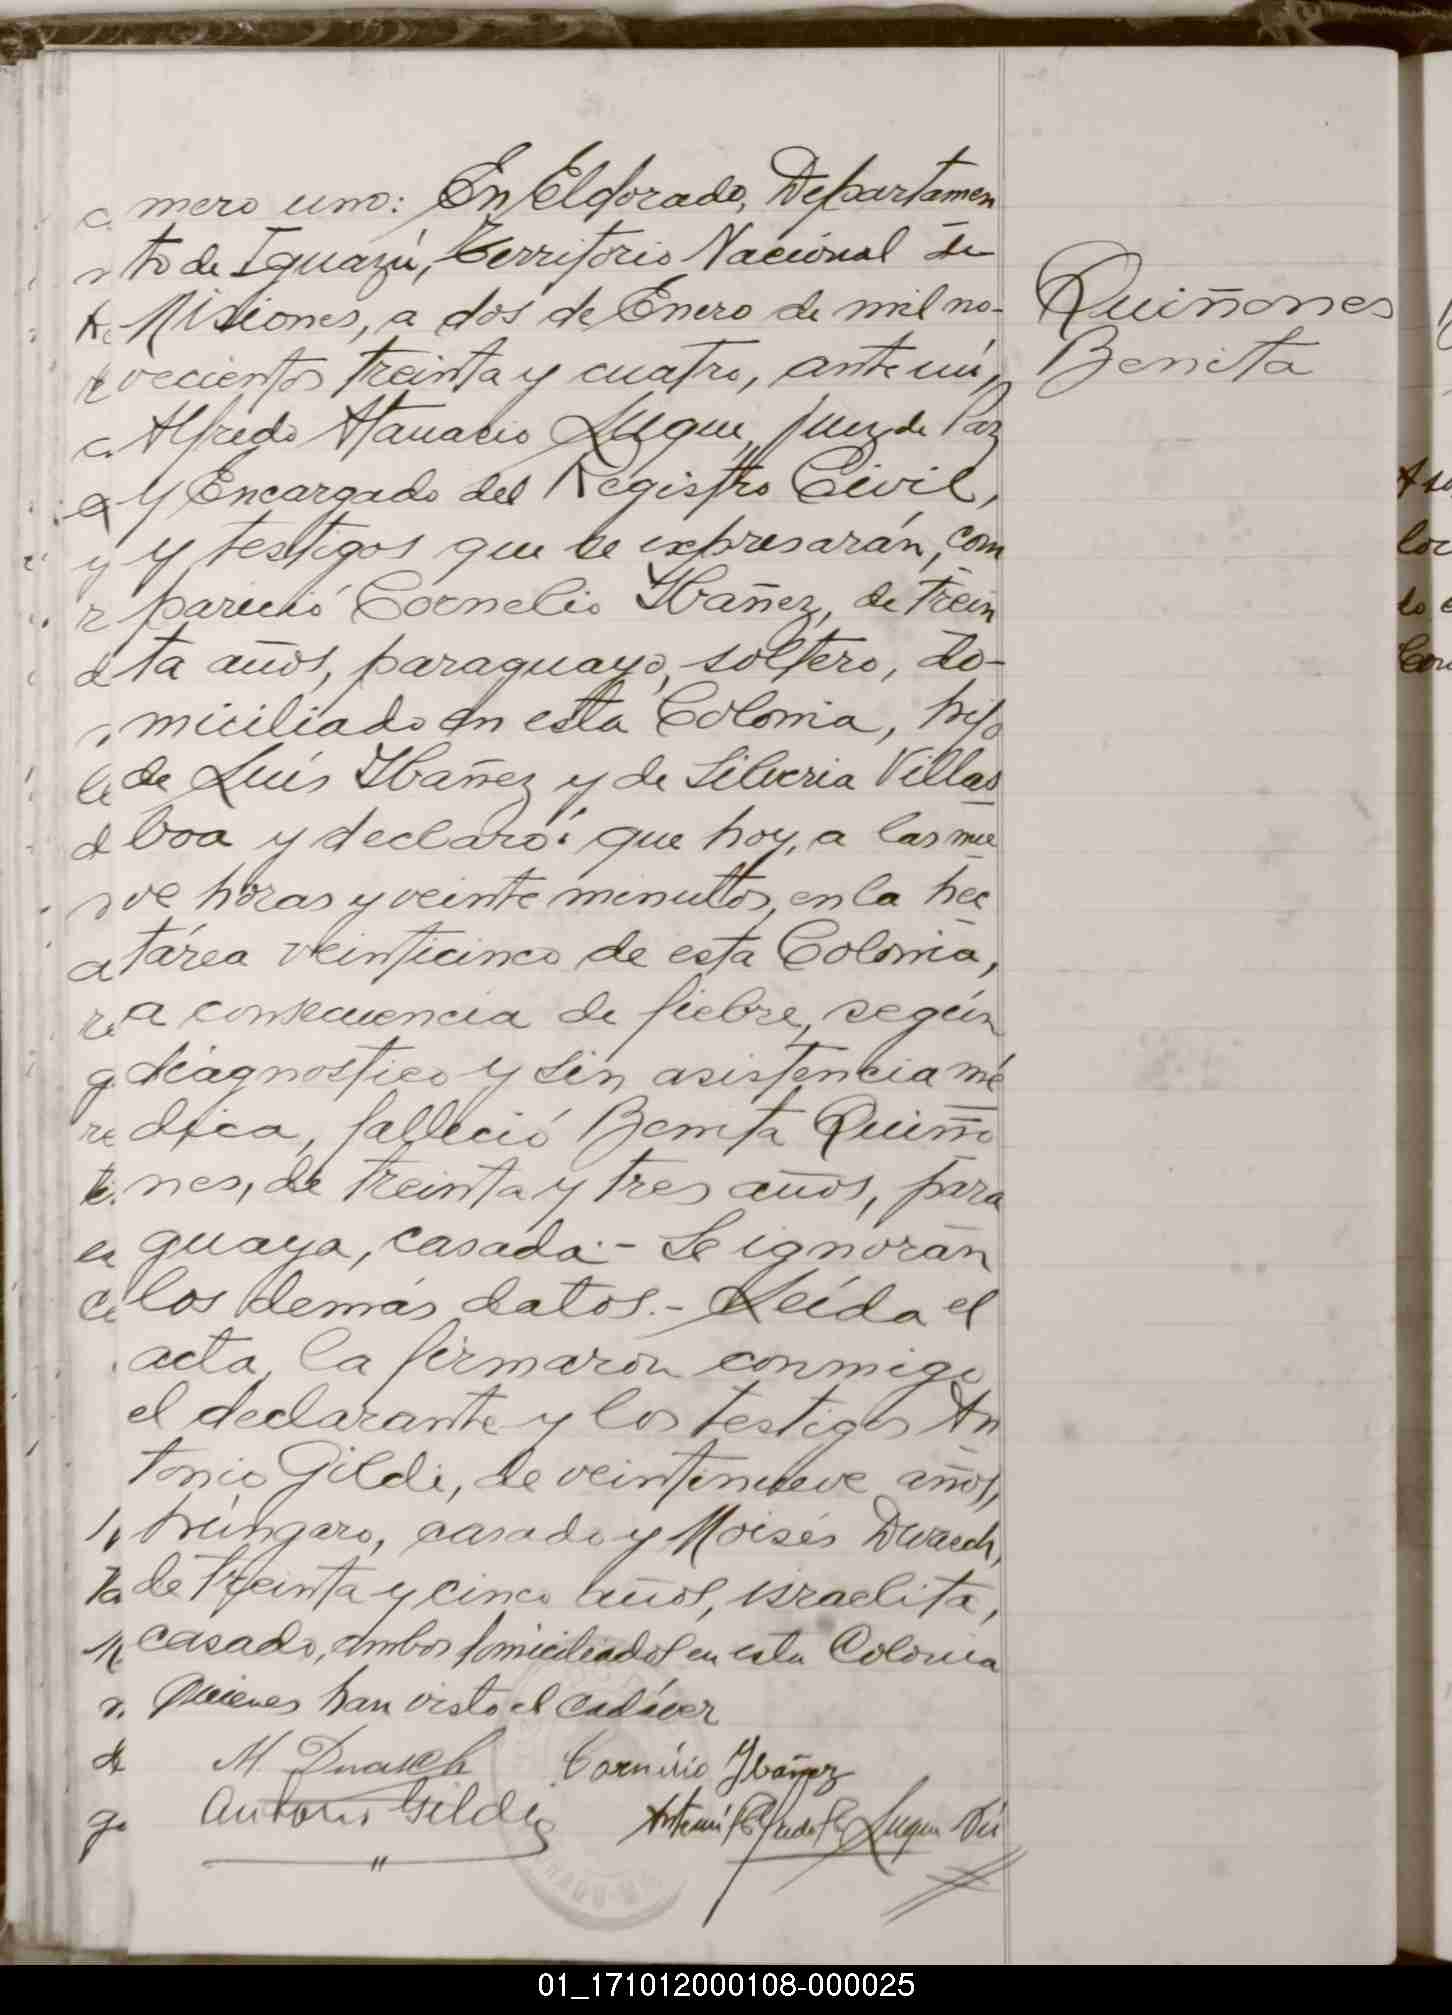 mero uno: En Eldorado, Departamen
to de Iguazú, Territorio Nacional de
Misiones, a dos de Enero de mil no-
vecientos treinta y cuatro, ante mí,
Alfredo Atanacio Luque, Juez de Paz
y Encargado del Registro Civil,
y testigos que se expresarán, com
pareció Cornelio Ibañez, de trein
ta años, paraguayo, soltero, do-
miciliado en esta Colonia, hijo
de Luís Ibañez y de Silveria Villas
boa y declaró: que hoy, a las nue
ve horas y veinte minutos, en la hec
tárea veinticinco de esta Colonia,
a consecuencia de fiebre, según
diágnostico y sin asistencia mé
dica, falleció Benita Quiño
nes, de treinta y tres años, para
guaya, casada.- Se ignoran
los demás datos.- Leída el
acta, la firmaron conmigo
el declarante y los testigos An
tonio Gildi, de veintinueve años,
húngaro, casado y Moisés Dwasch,
de treinta y cinco años, israelita,
casado, ambos domiciliados en esta Colonia
Quienes han visto el cadáver
M Dwasch
Ibañez
Antonio Gildi
Luque
Quiñones
Benita
01_171012000108-000025